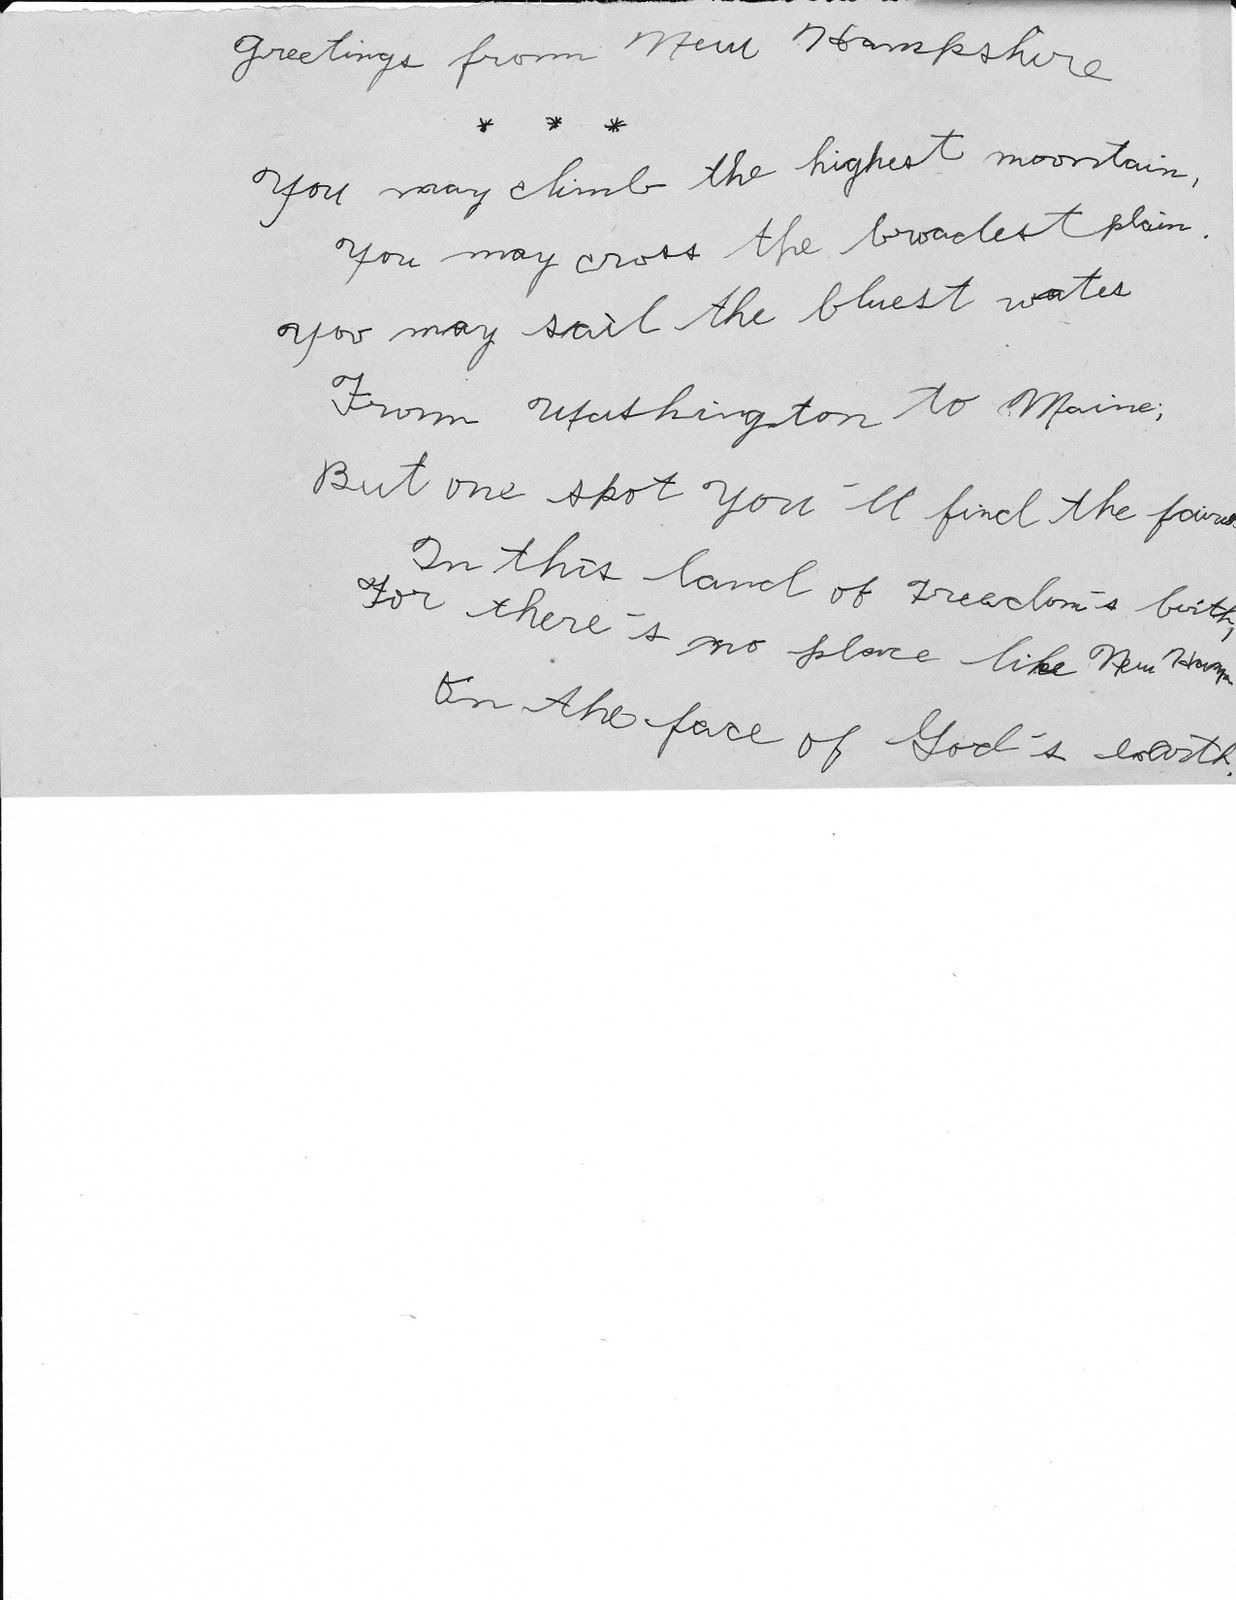 Greetings from New Hampshire
* * *
You may climb the highest mountain,
You may cross the broadest plain.
You may sail the bluest wates
From Washington to Maine;
But one spot you'll find the faires
In this land of Freedom's birth,
For there's no place like New Hamp
On the face of God's earth.